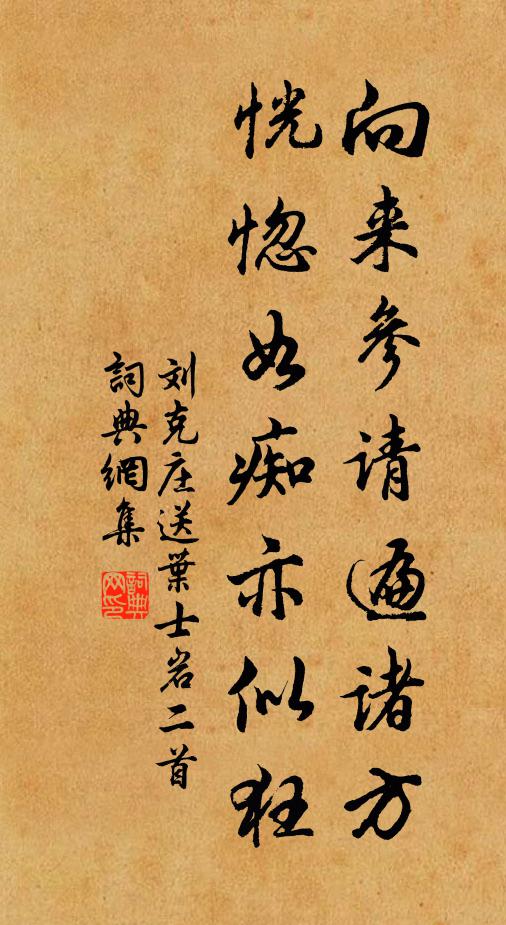 向来参请遍诸方
恍惚如痴亦似狂
刘克庄送葉士岩二首
詞典網集
詞典网印